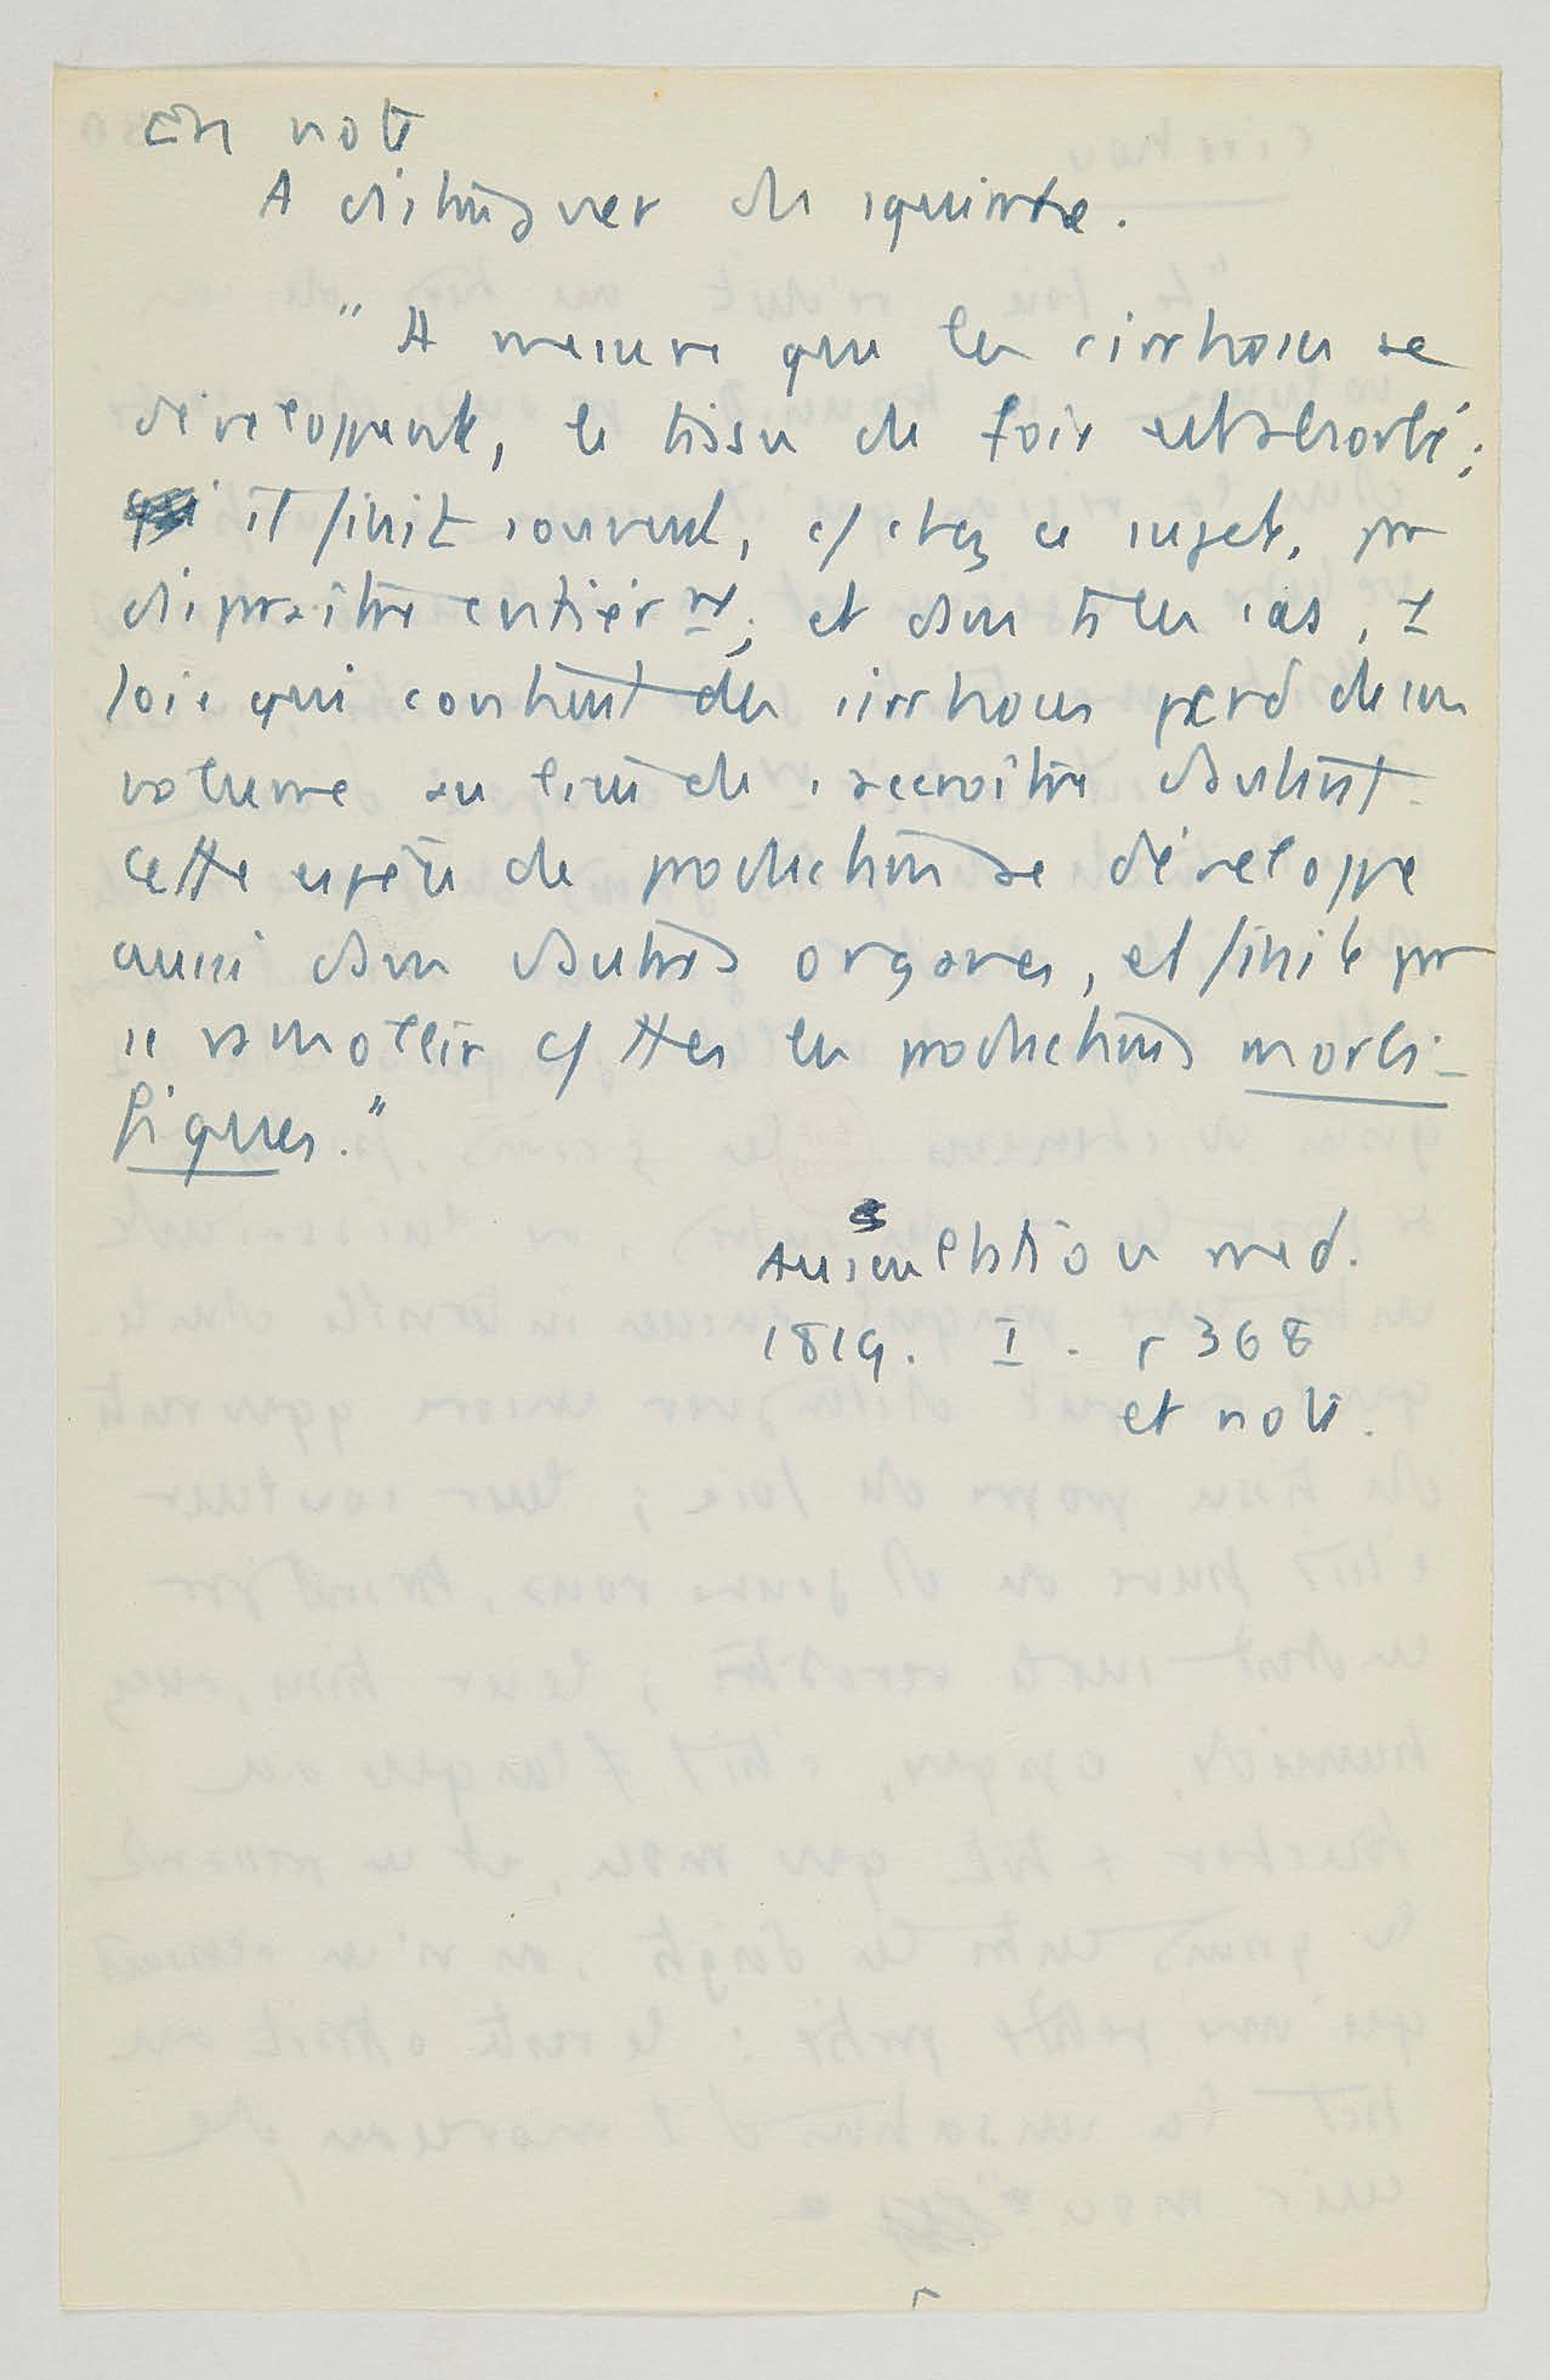 En note
A distinguer du squirrhe.
" A mesure que les cirrhoses se
développent, le tissu du foie est absorbé ;
il finit souvent, c/ chez ce sujet, par
disparaître entièr mt ; et dans ts les cas, 1
foie qui contient des cirrhoses perd de son
volume au lieu de s'accroître d'autant.
Cette espèce de production se développe
aussi dans d'autres organes, et finit par
se ramollir c/ ttes les productions morbi-
fiques."
Auscultation med.
1819. I. p 368
et note.